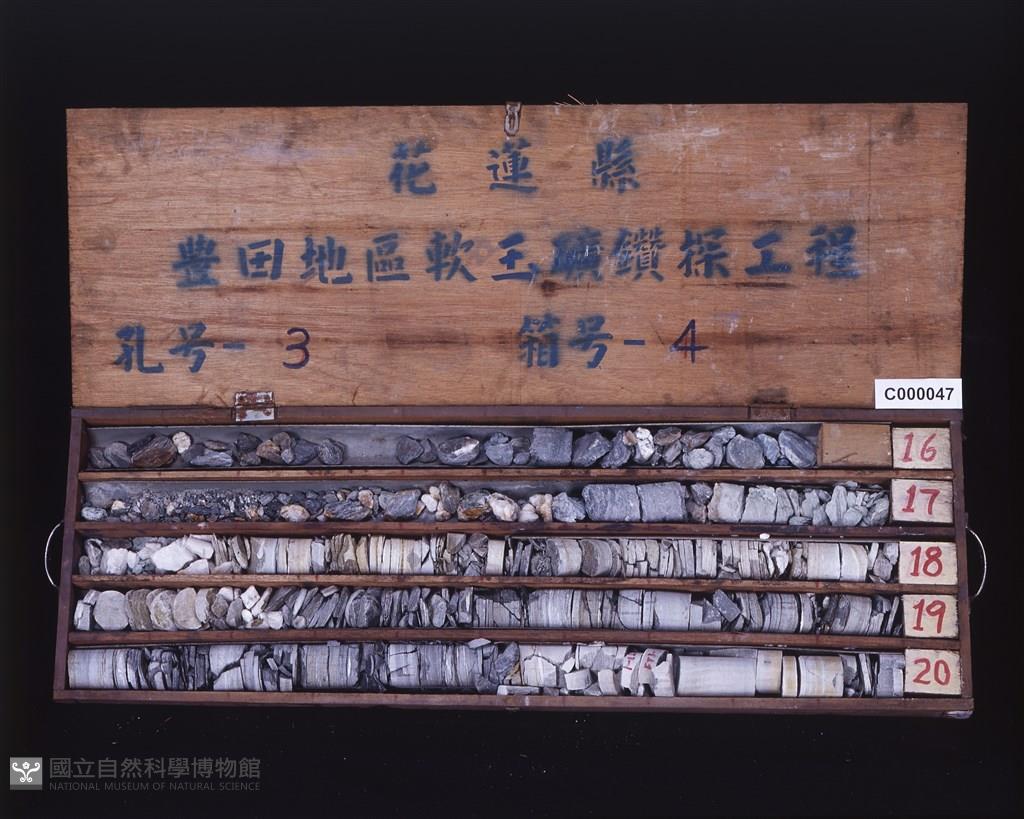 花蓮縣
豐田地區軟玉礦鑽探工程
孔号-3 箱号-4
C000047
16
17
18
19
20
國立自然科學博物館
NATIONAL MUSEUM OF NATURAL SCIENCE